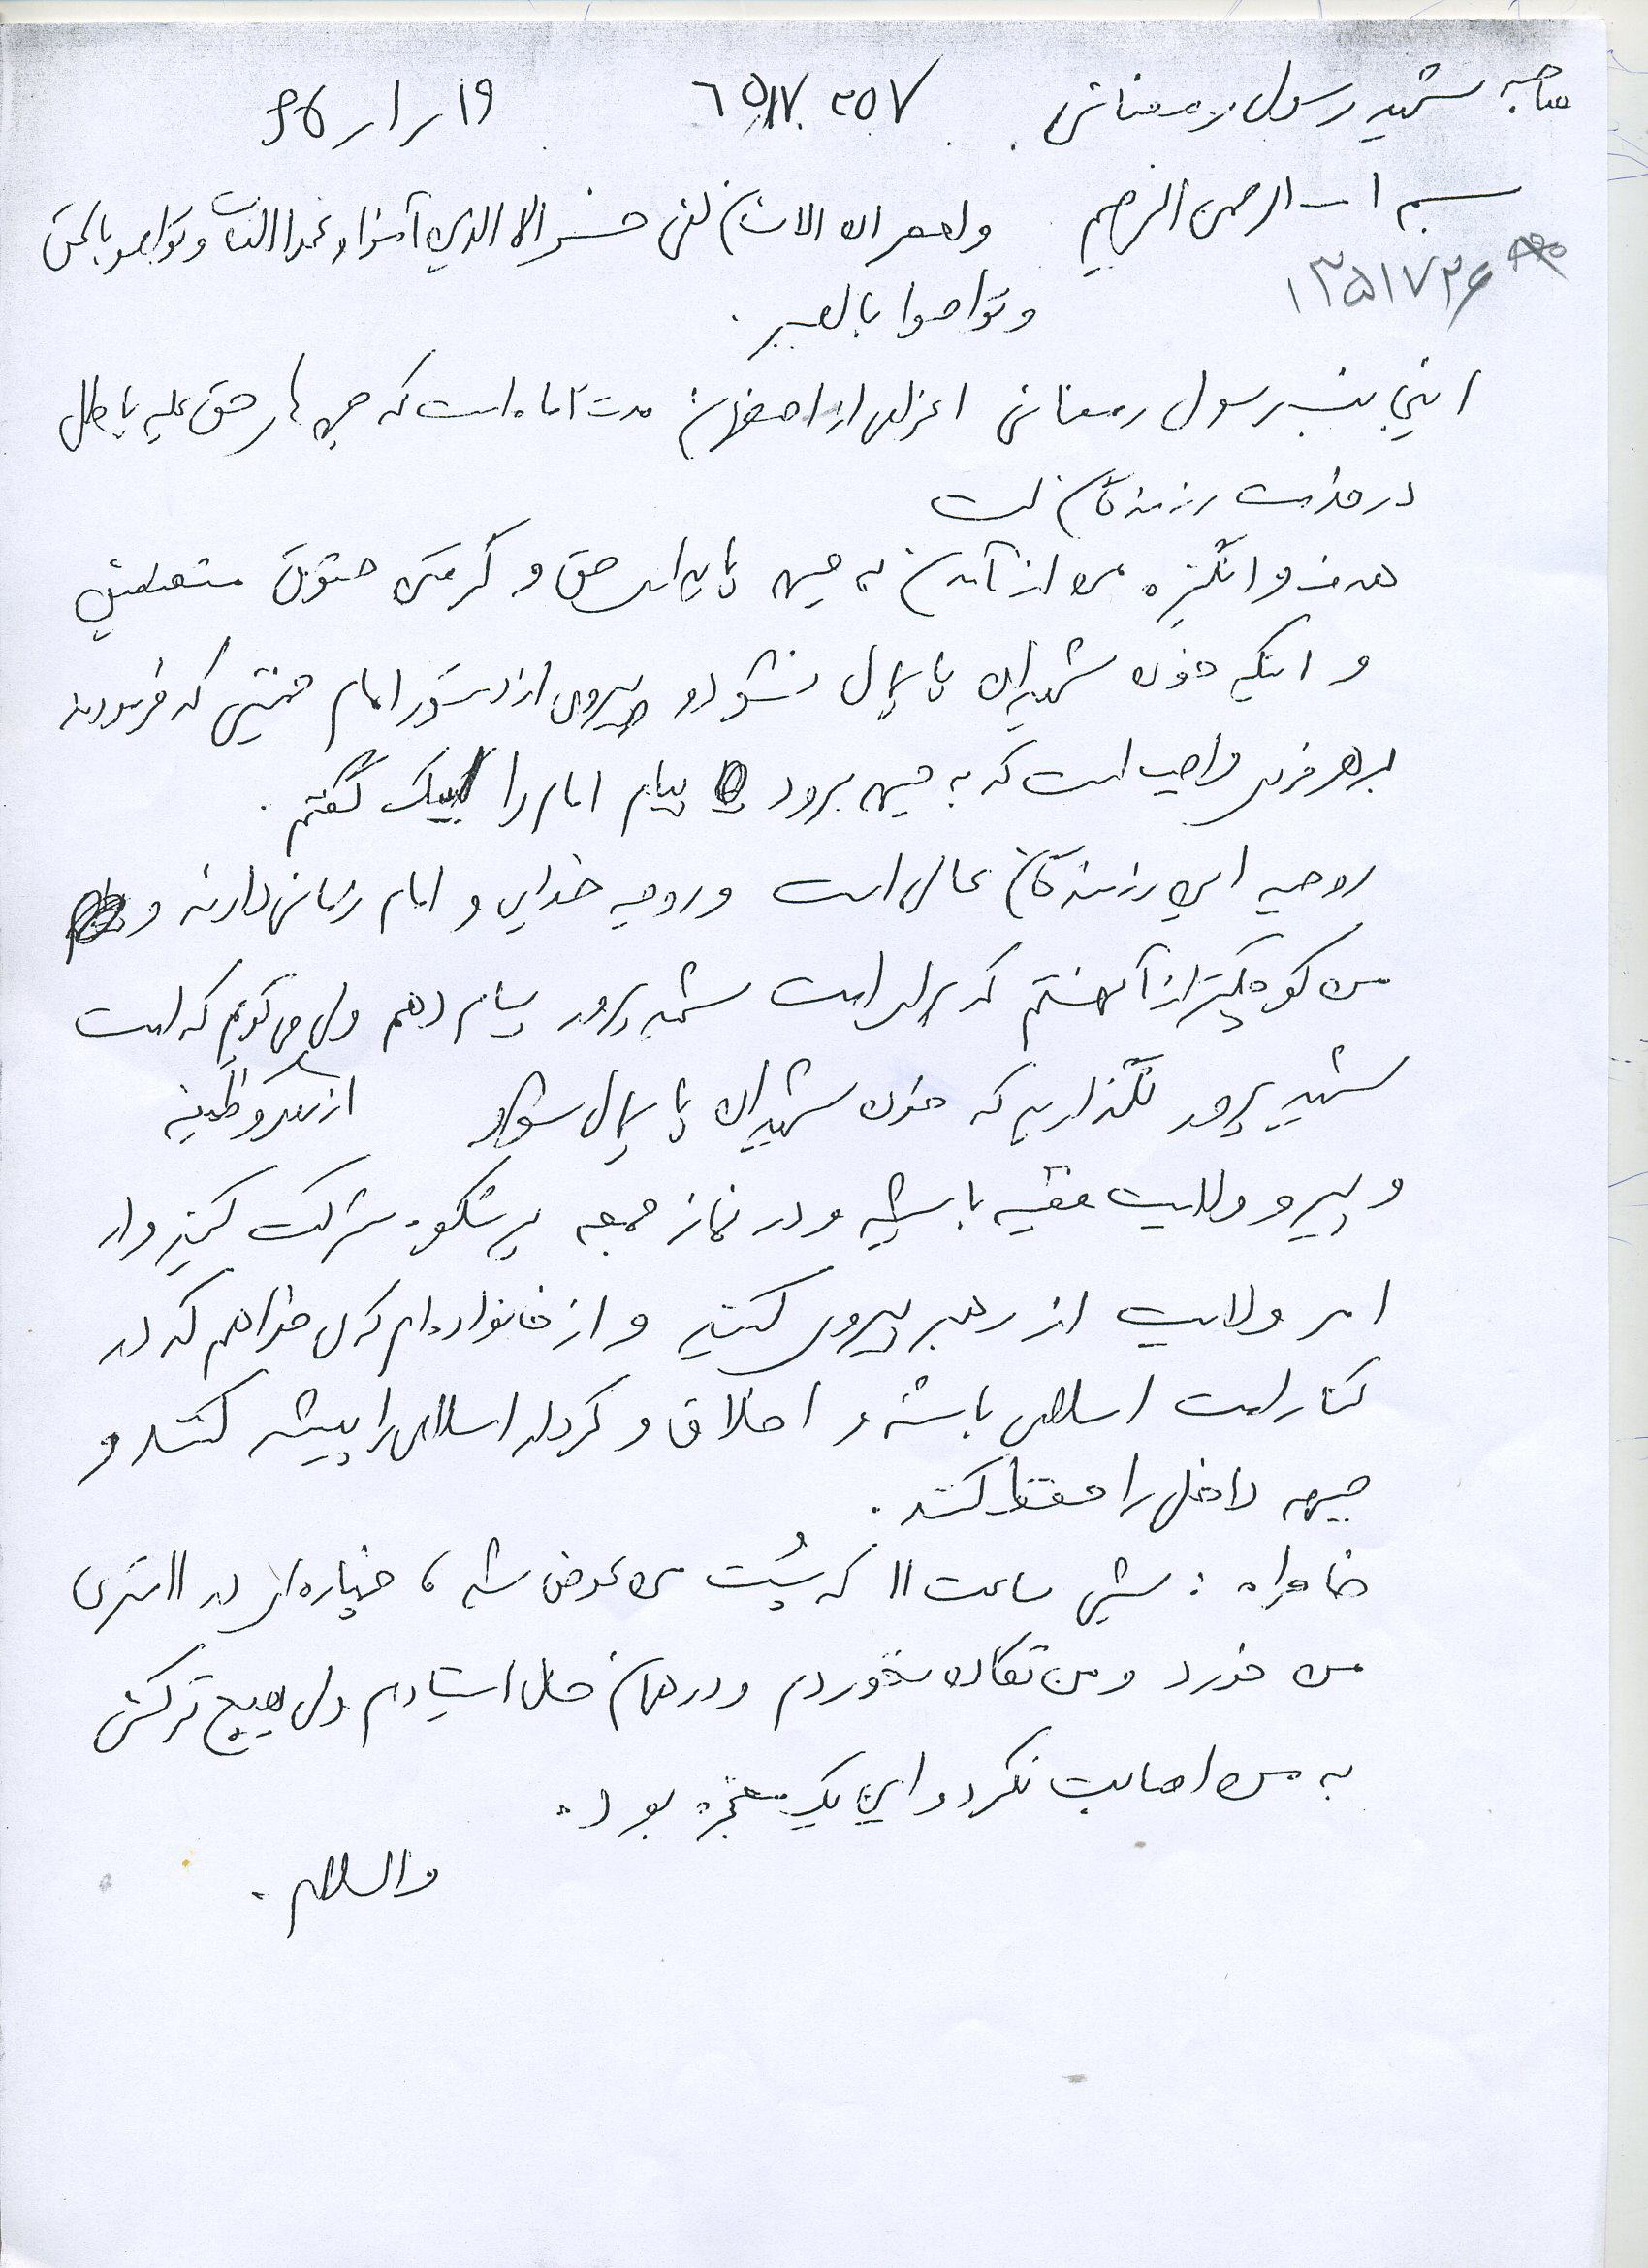 مصاحبه شهید رسول رمضانی ۶۵۱۷۰۲۵۷ ۱۹ر۱ر۶۶
بسم ا... الرحمن الرحیم والعصر ان الانسان لفی خسر الا الذین آمنوا و عملوا الصالحات و تواصو بالحق
۱۳۵۱۷۲۶
وتواصوا بالصبر.
اینجانب رسول رمضانی اعزامی از اصفهان مدت ماه است که جبهه های حق علیه باطل
در خدمت رزمندگان است
هدف و انگیزه من از آمدن به جبهه پایداری حق و گرفتن حقوق مستضعفین
و اینکه خون شهیدان پایمال نشود و پیروی از دستور امام خمینی که فرمودند
بر هر فردی واجب است که به جبهه برود پیام امام را لبیک گفتم.
روحیه این رزمندگان عالی است و روحیه خدایی و امام زمانی دارند و
من کوچکتر از آن هستم که برای امت شهید پرور پیام دهم ولی می گویم که امت
شهید پرور نگذاریم که خون شهیدان پایمال شود
و پیرو ولایت فقیه باشید و در نماز جمعه پرشکوه شرکت کنید و از
امر ولایت از رهبر پیروی کنید و از خانواده ام که می خواهم که در
کنار امت اسلامی باشند و اخلاق و کردار اسلامی را پیشه کنند و
جبهه داخلی را حفظ کنند.
خاطره : شبی ساعت ۱۱ که پُست من عوض شد ، خمپاره ای در ۱۱ متری
من خورد و من تکان نخوردم و در همان حال ایستادم ولی هیچ ترکش
به من اصابت نکرد و این یک معجزه بود.
والسلام.